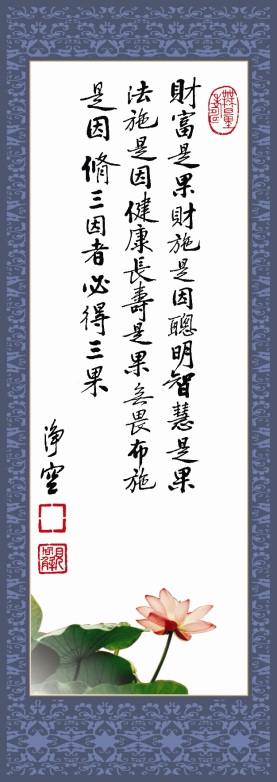 財富是果財施是因聰明智慧是果
法施是因健康長壽是果無畏布施
是因脩三因者必得三果
淨空
無量壽